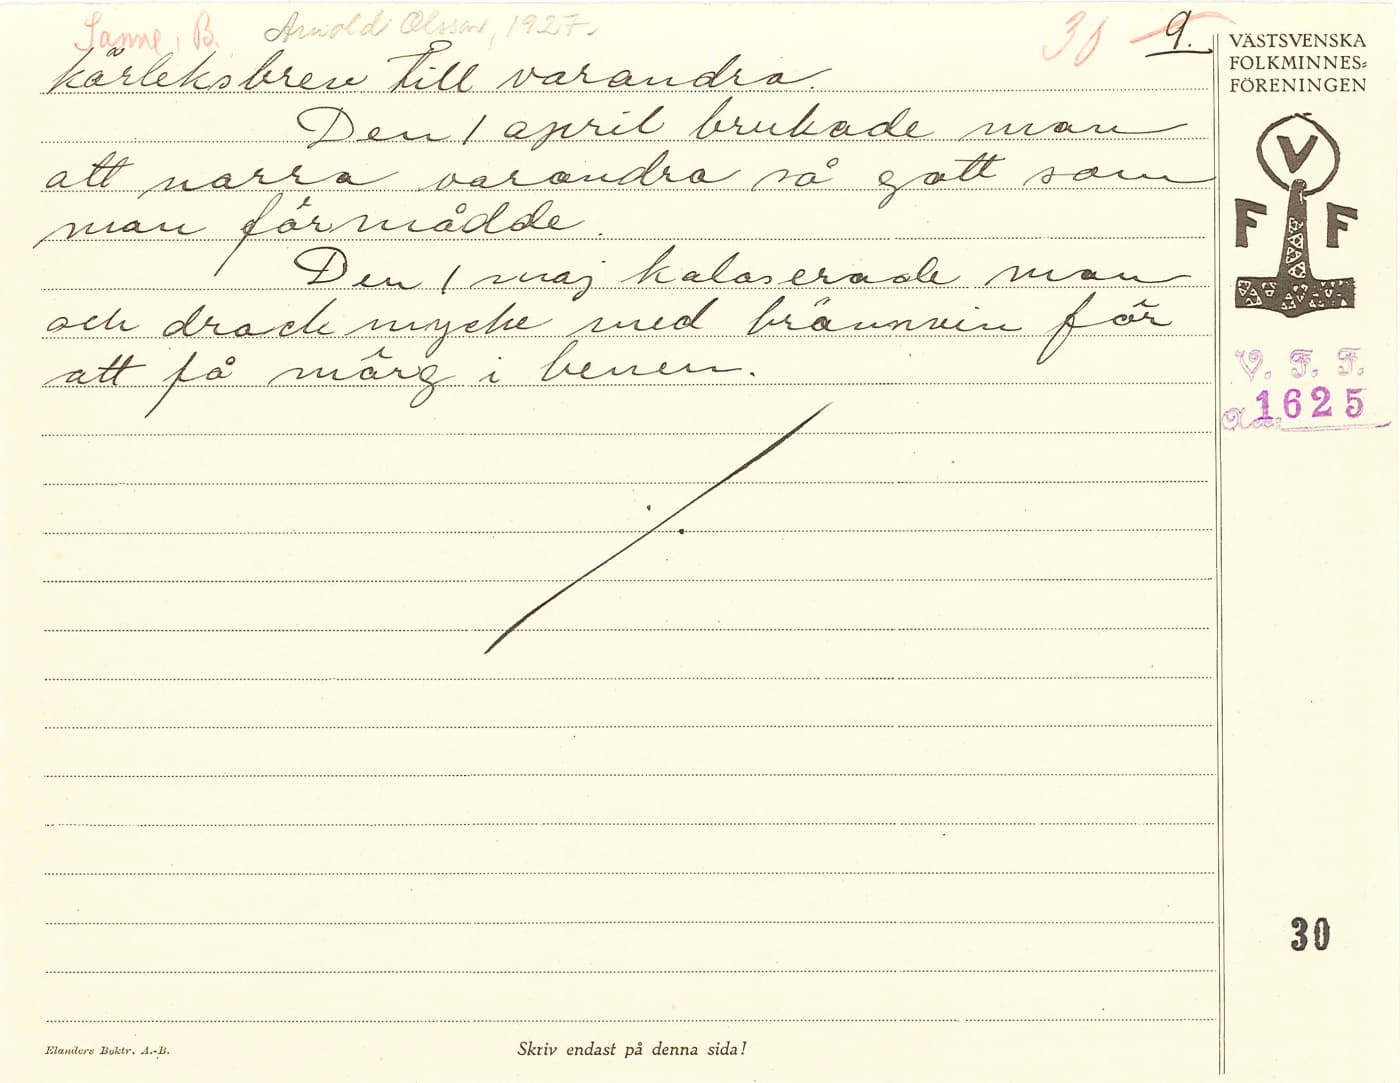 Sanne, B. Arnold Olsson, 1927. 30 9.
kärleksbrev till varandra.
Den 1 april brukade man
att narra varandra så gott som
man förmådde.
Den 1 maj kalaserade man
och drack mycke med brännvin för
att få märg i benen.
VÄSTSVENSKA
FOLKMINNES=
FÖRENINGEN
V
F F
V. F. F.
No: 1625
30
Elanders Boktr. A.-B.
Skriv endast på denna sida!